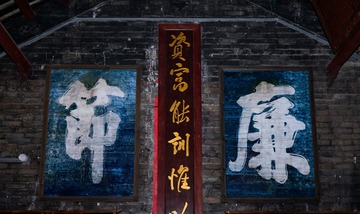 廉
資富能訓惟
節